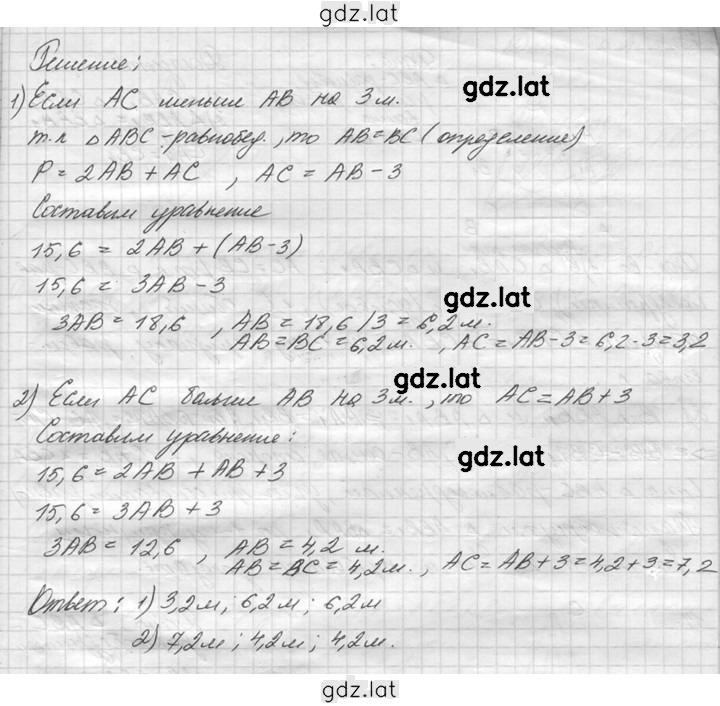 gdz.lat
Решение:
gdz.lat
1) Если AC меньше AB на 3 м.
т.к △ABC - равнобед., то AB=BC (определение)
P = 2AB + AC , AC = AB - 3
Составим уравнение
15,6 = 2AB + (AB-3)
15,6 = 3AB - 3
gdz.lat
3AB = 18,6 , AB = 18,6 / 3 = 6,2 м.
AB=BC = 6,2 м. , AC = AB-3 = 6,2-3 = 3,2
gdz.lat
2) Если AC больше AB на 3 м. , то AC = AB + 3
Составим уравнение:
gdz.lat
15,6 = 2AB + AB + 3
15,6 = 3AB + 3
3AB = 12,6 , AB = 4,2 м.
AB = BC = 4,2 м. , AC = AB + 3 = 4,2 + 3 = 7,2
Ответ: 1) 3,2 м ; 6,2 м ; 6,2 м
2) 7,2 м ; 4,2 м ; 4,2 м.
gdz.lat